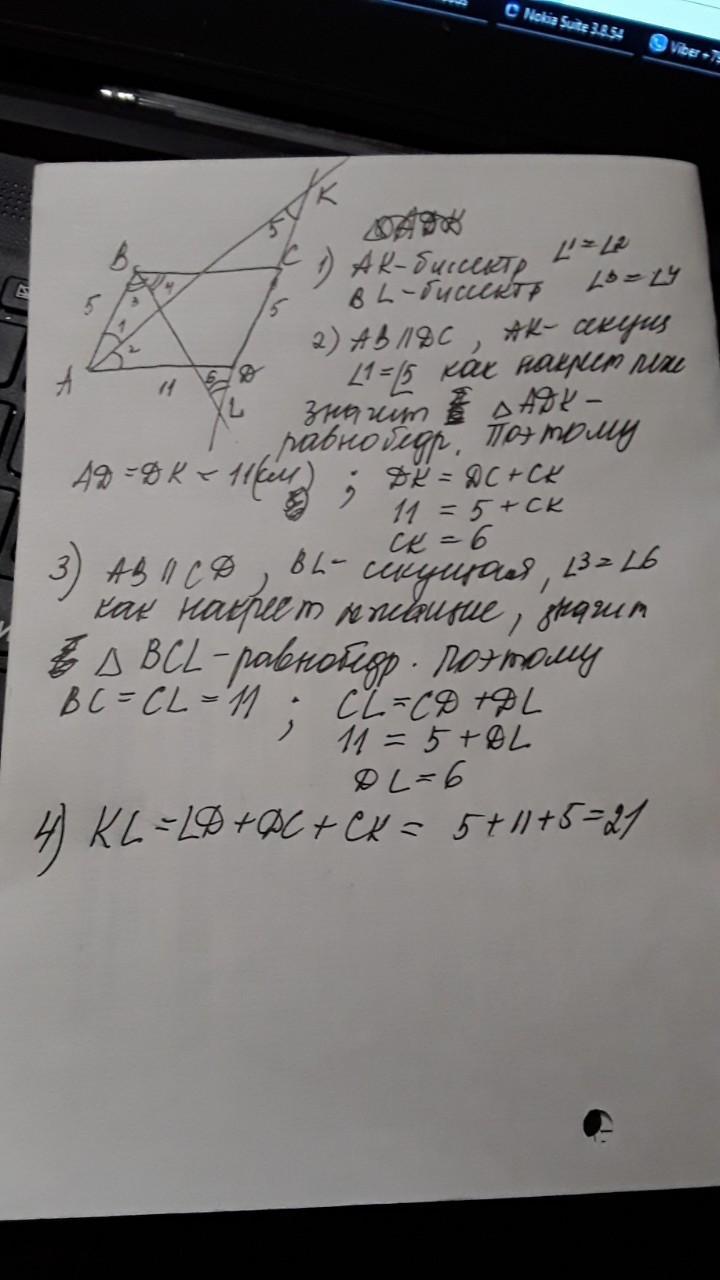 Nokia Suite 3.8.54
Viber +79
K
5
B
C
4
3
5
5
1
2
A
11
6
D
L
1) AK-биссектр ∠1=∠2
BL-биссектр ∠3=∠4
2) AB||DC, AK- секущ
∠1=∠5 как накрест леж
значит △ADK-
равнобедр. Поэтому
AD=DK=11(см) ; DK=DC+CK
11=5+CK
CK=6
3) AB||CD, BL- секущая, ∠3=∠6
как накрест лежащие, значит
△BCL-равнобедр. Поэтому
BC=CL=11 ; CL=CD+DL
11=5+DL
DL=6
4) KL=LD+DC+CK= 5+11+5=21